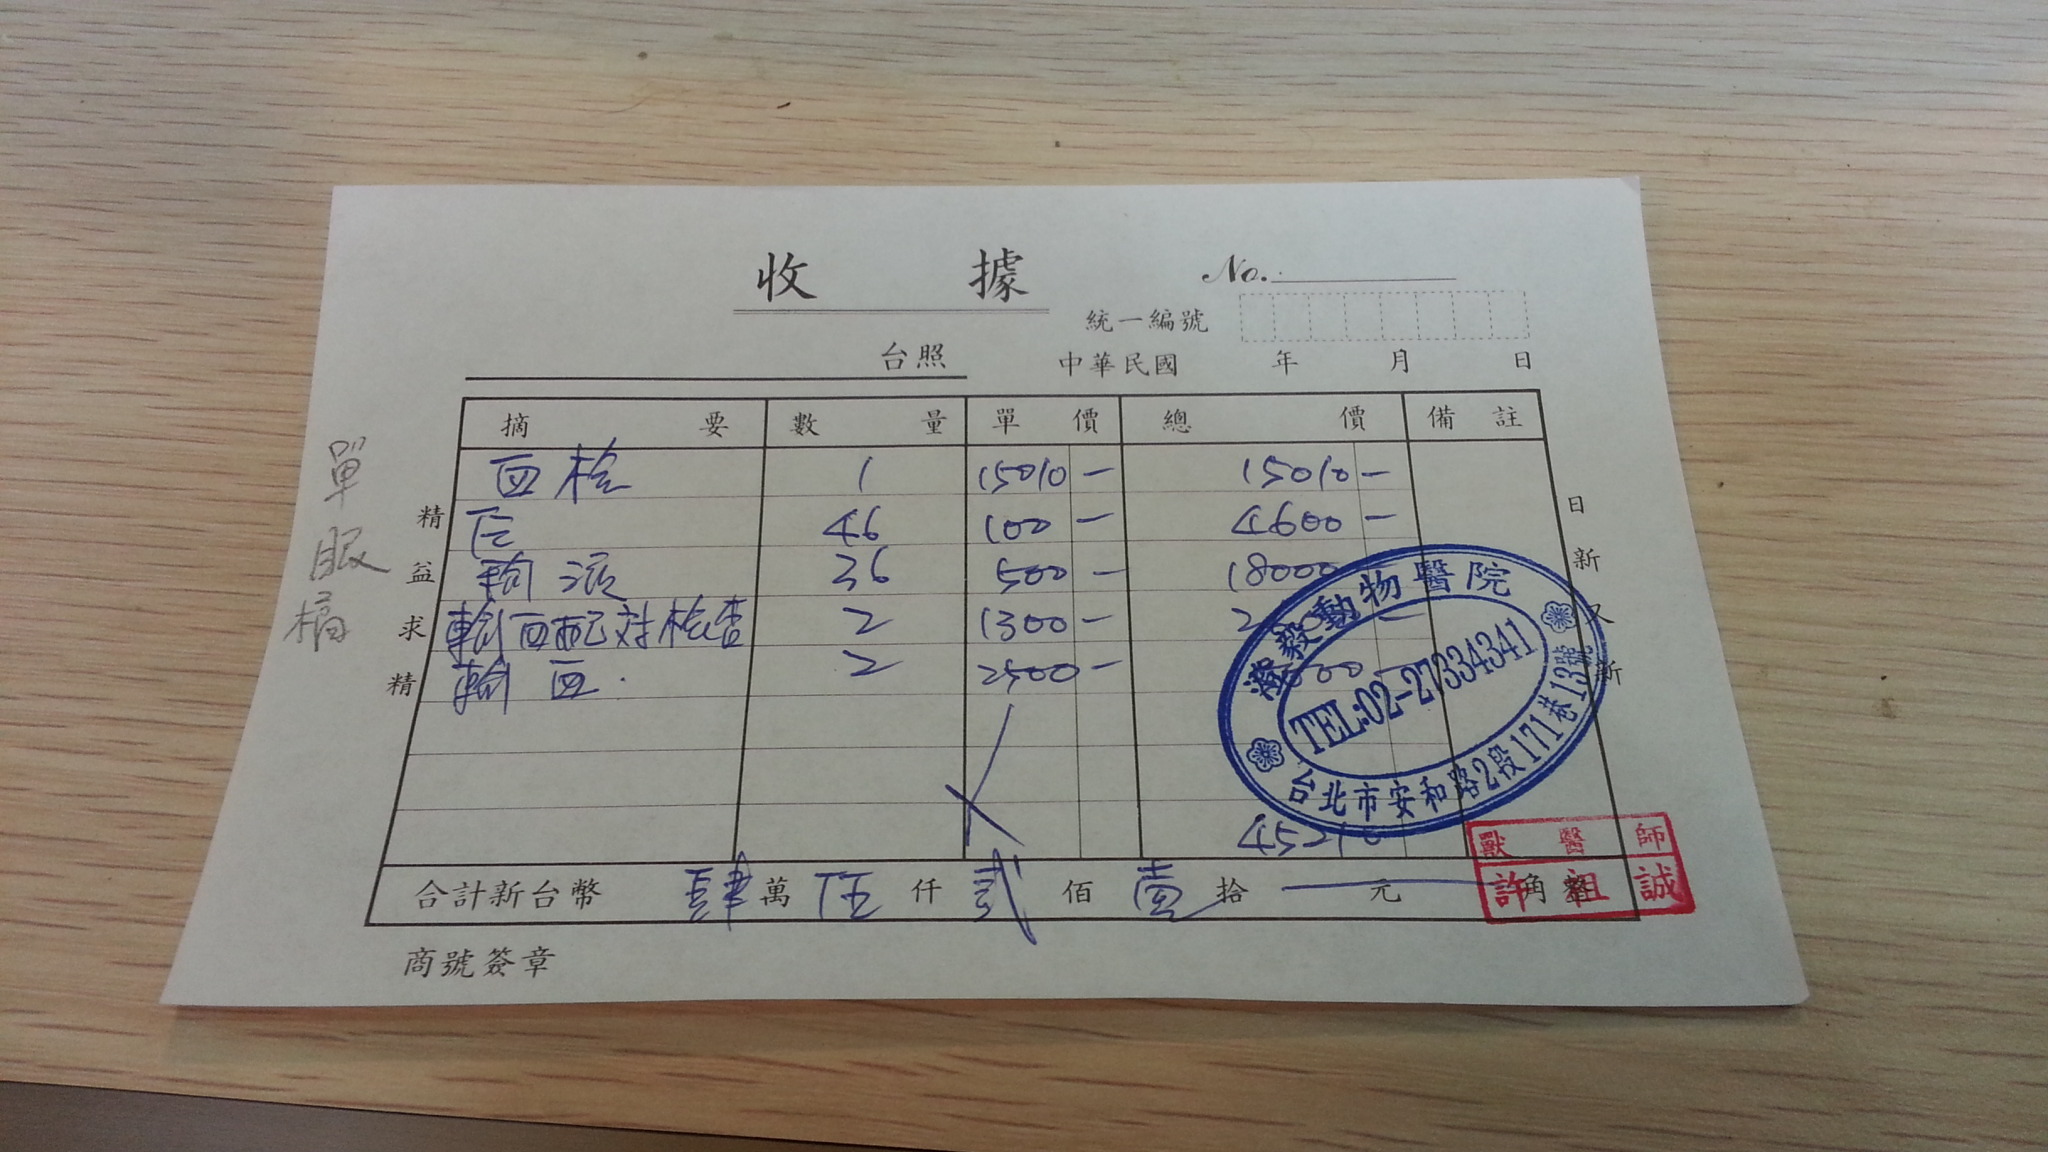 收據
No.
統一編號
台照 中華民國 年 月 日
摘要 數量 單價 總價 備註
血檢 1 15010- 15010-
46 100- 4600-
輸液 36 500- 18000
輸血配对檢查 2 1300- 2
輸血. 2 2500-
4521
合計新台幣 肆萬伍仟貳佰壹拾 元 角
商號簽章
單眼橘
精益求精
日新又新
毅動物醫院
TEL:02-27334341
台北市安和路2段171巷13號
獸醫師
許祖誠